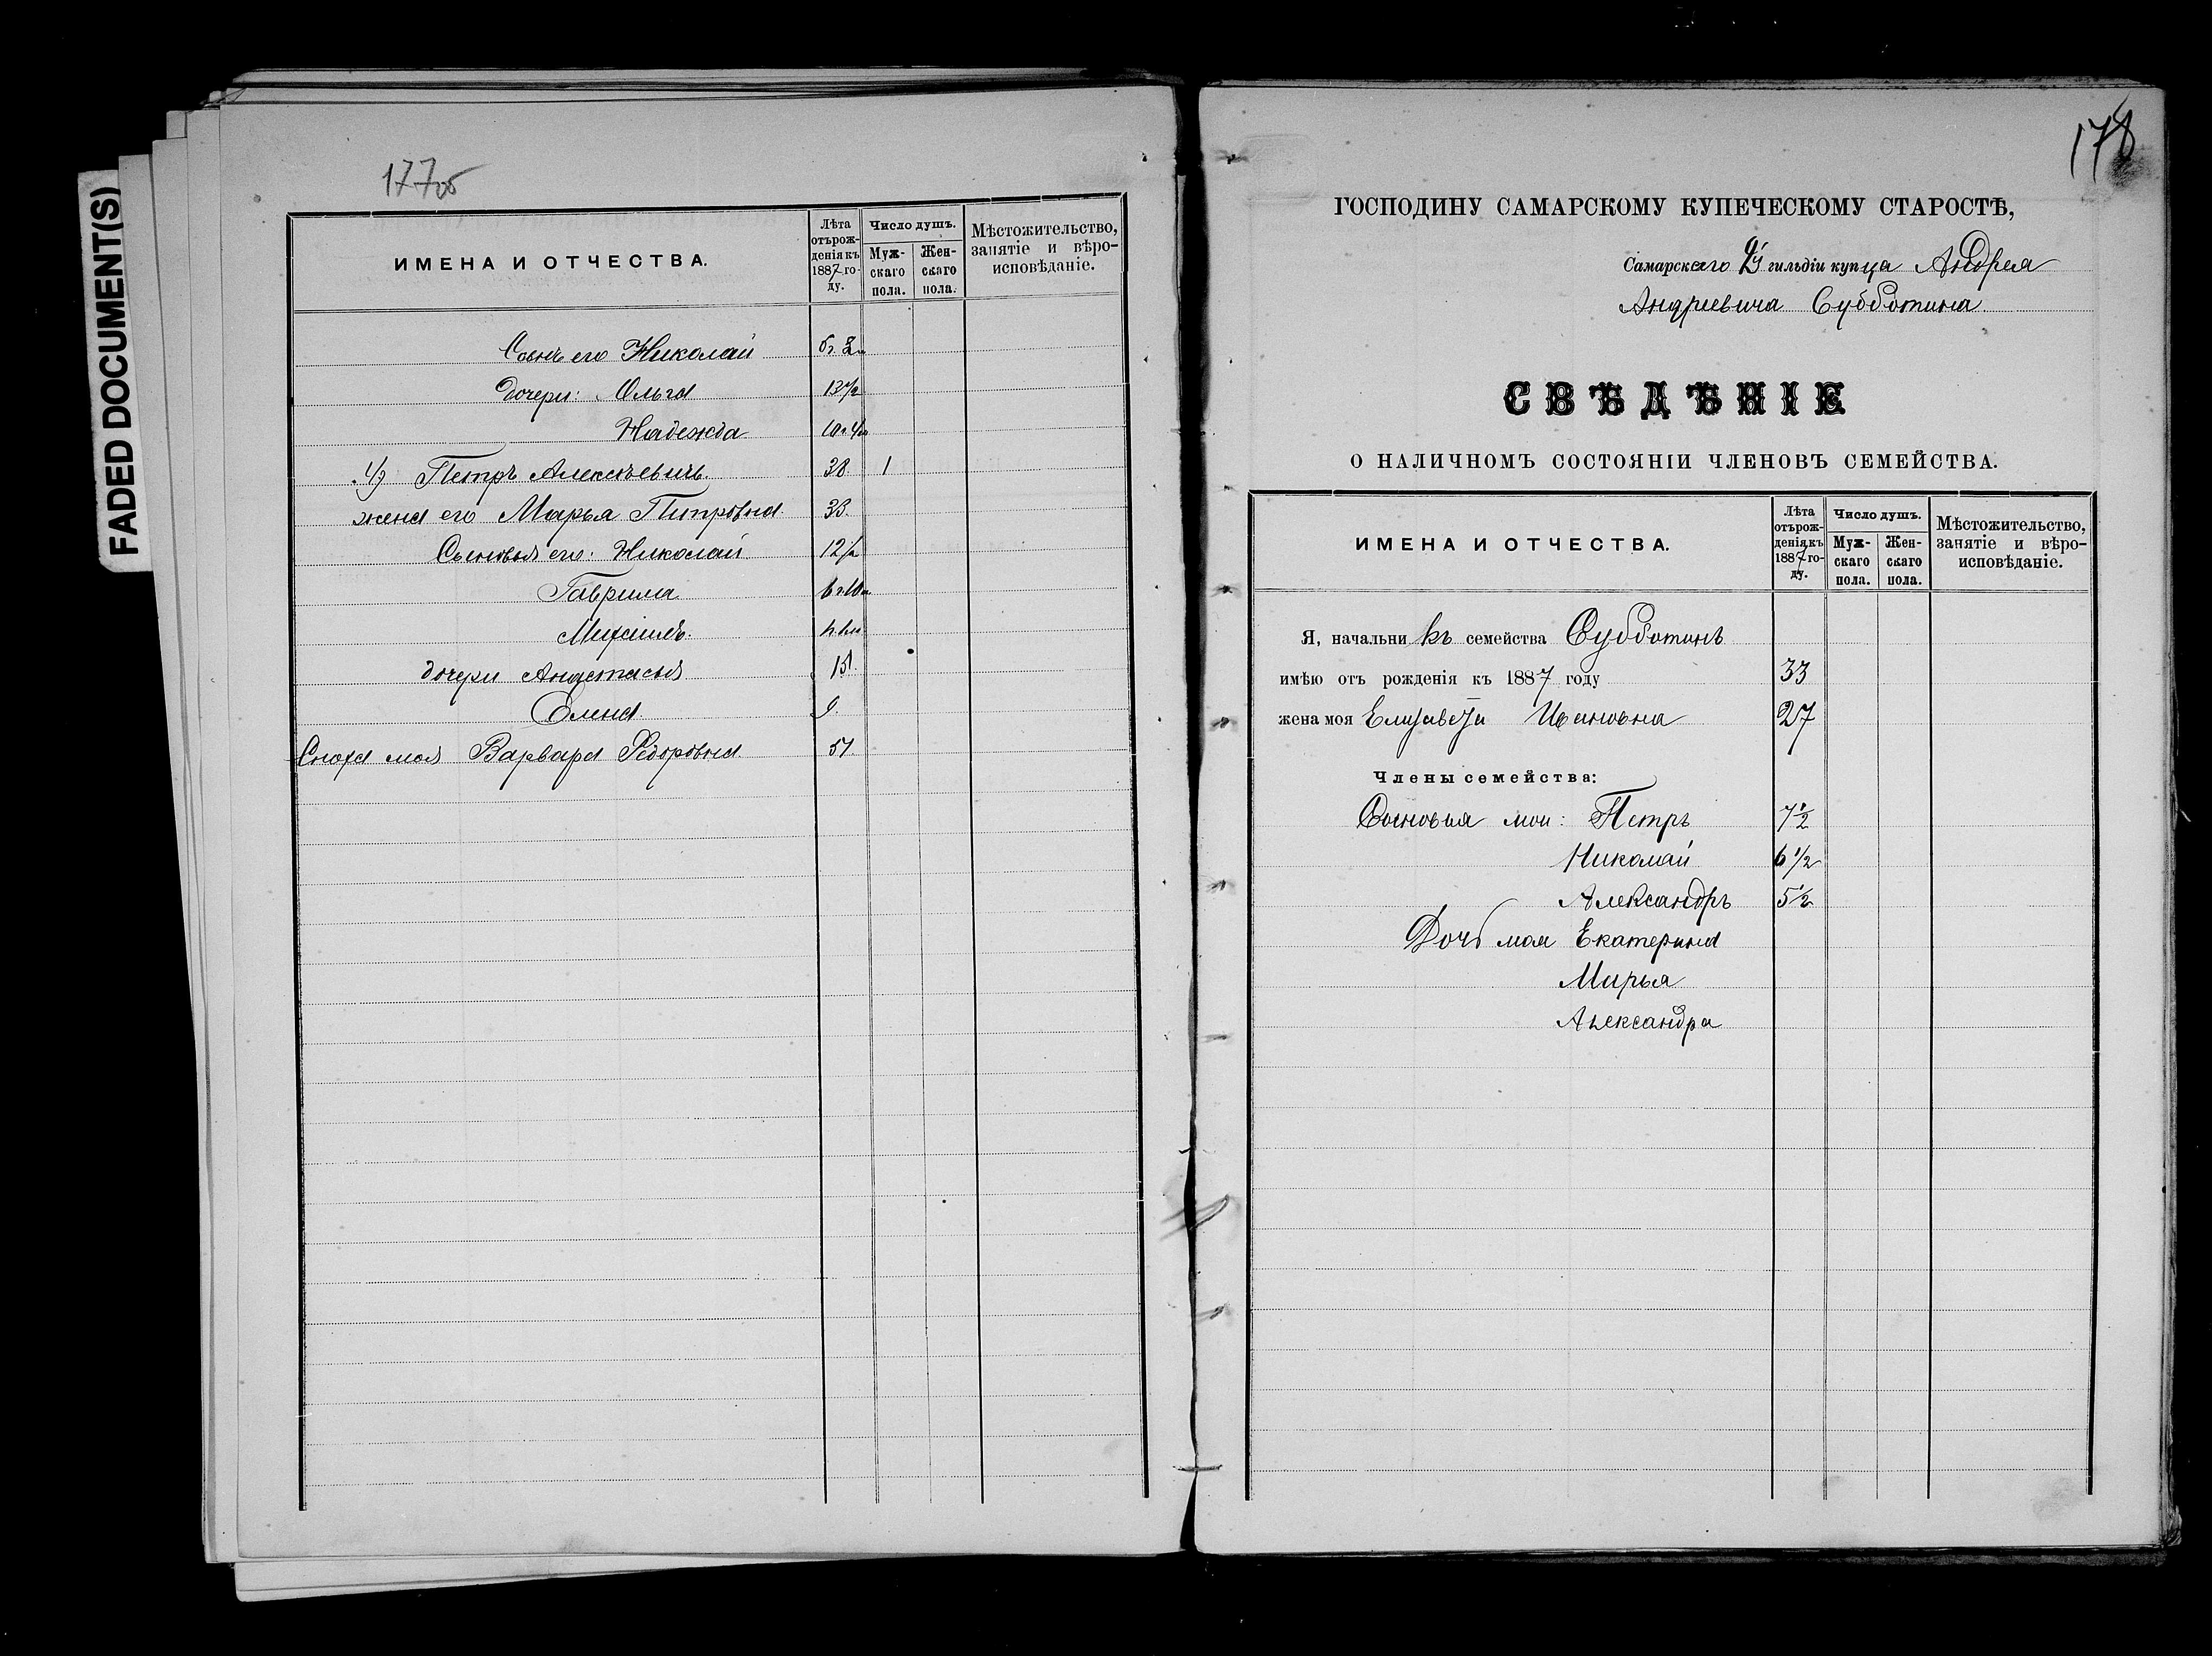 FADED DOCUMENT(S)
177об
ИМЕНА И ОТЧЕСТВА.
Лѣта отъ рожденія къ 1887 году.
Число душъ.
Мужскаго пола.
Женскаго пола.
Мѣстожительство, занятіе и вѣроисповѣданіе.
Сынъ его Николай
дочери: Ольга 13 1/2
Надежда
4) Петръ Алексѣевичъ. 38 1
жена его Марья Петровна. 33.
Сыновья его: Николай 12 1/2
Гаврила 6 г. 10 м
Михаилъ.
дочери Анастасья
Елена 9.
Сноха моя Варвара Федоровна 51.
178
ГОСПОДИНУ САМАРСКОМУ КУПЕЧЕСКОМУ СТАРОСТѢ,
Самарскаго 2й гильдіи купца Андрея
Андреевича Субботина
СВѢДѢНІЕ
О НАЛИЧНОМЪ СОСТОЯНІИ ЧЛЕНОВЪ СЕМЕЙСТВА.
ИМЕНА И ОТЧЕСТВА.
Лѣта отъ рожденія къ 1887 году.
Число душъ.
Мужскаго пола.
Женскаго пола.
Мѣстожительство, занятіе и вѣроисповѣданіе.
Я, начальникъ семейства Субботинъ
имѣю отъ рожденія къ 1887 году 33
жена моя Елизавета Ивановна 27
Члены семейства:
Сыновья мои: Петръ 7 1/2
Николай 6 1/2
Александръ 5 1/2
Дочь моя Екатерина
Марья
Александра